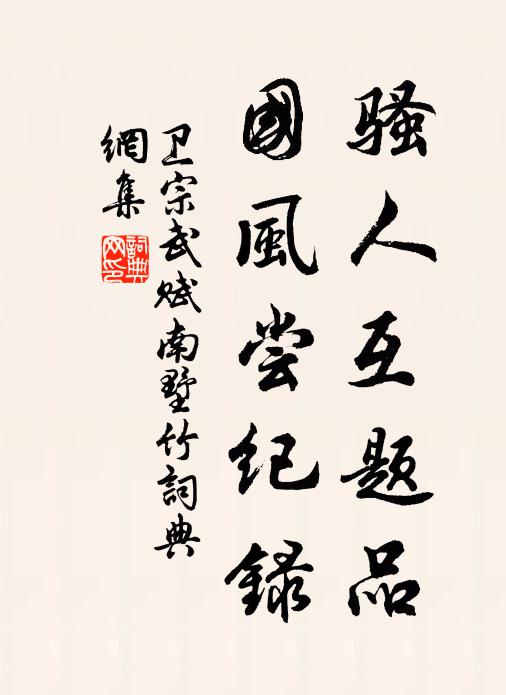 骚人互题品
國風尝纪録
卫宗武赋南墅竹詞典
網集
詞典
网印